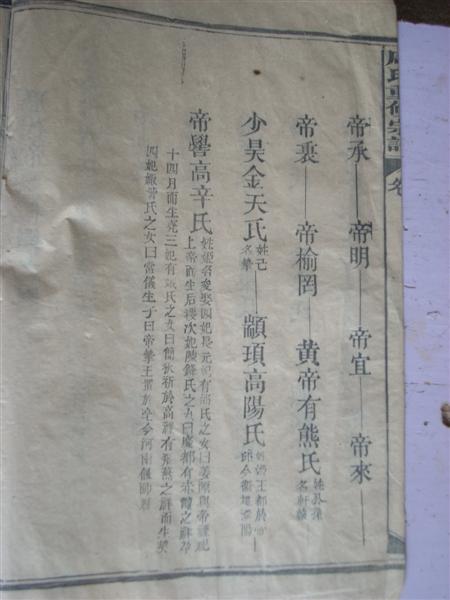 周氏重修宗譜 卷
帝承 帝明 帝宜 帝來
帝裏 帝榆罔 黃帝有熊氏 名軒轅
少昊金天氏 姓己名摯 顓頊高陽氏
帝嚳高辛氏 姓姬名夋娶四妃長元妃有邰氏之女曰姜嫄與帝禋祀
上帝而生后稷次妃陳鋒氏之女曰慶都有赤龍之祥孕
十四月而生堯三妃有娀氏之女曰簡狄祈於高禖有飛燕之祥而生契
四妃娵訾氏之女曰常儀生子曰帝摯王置於亳今河南偃師縣